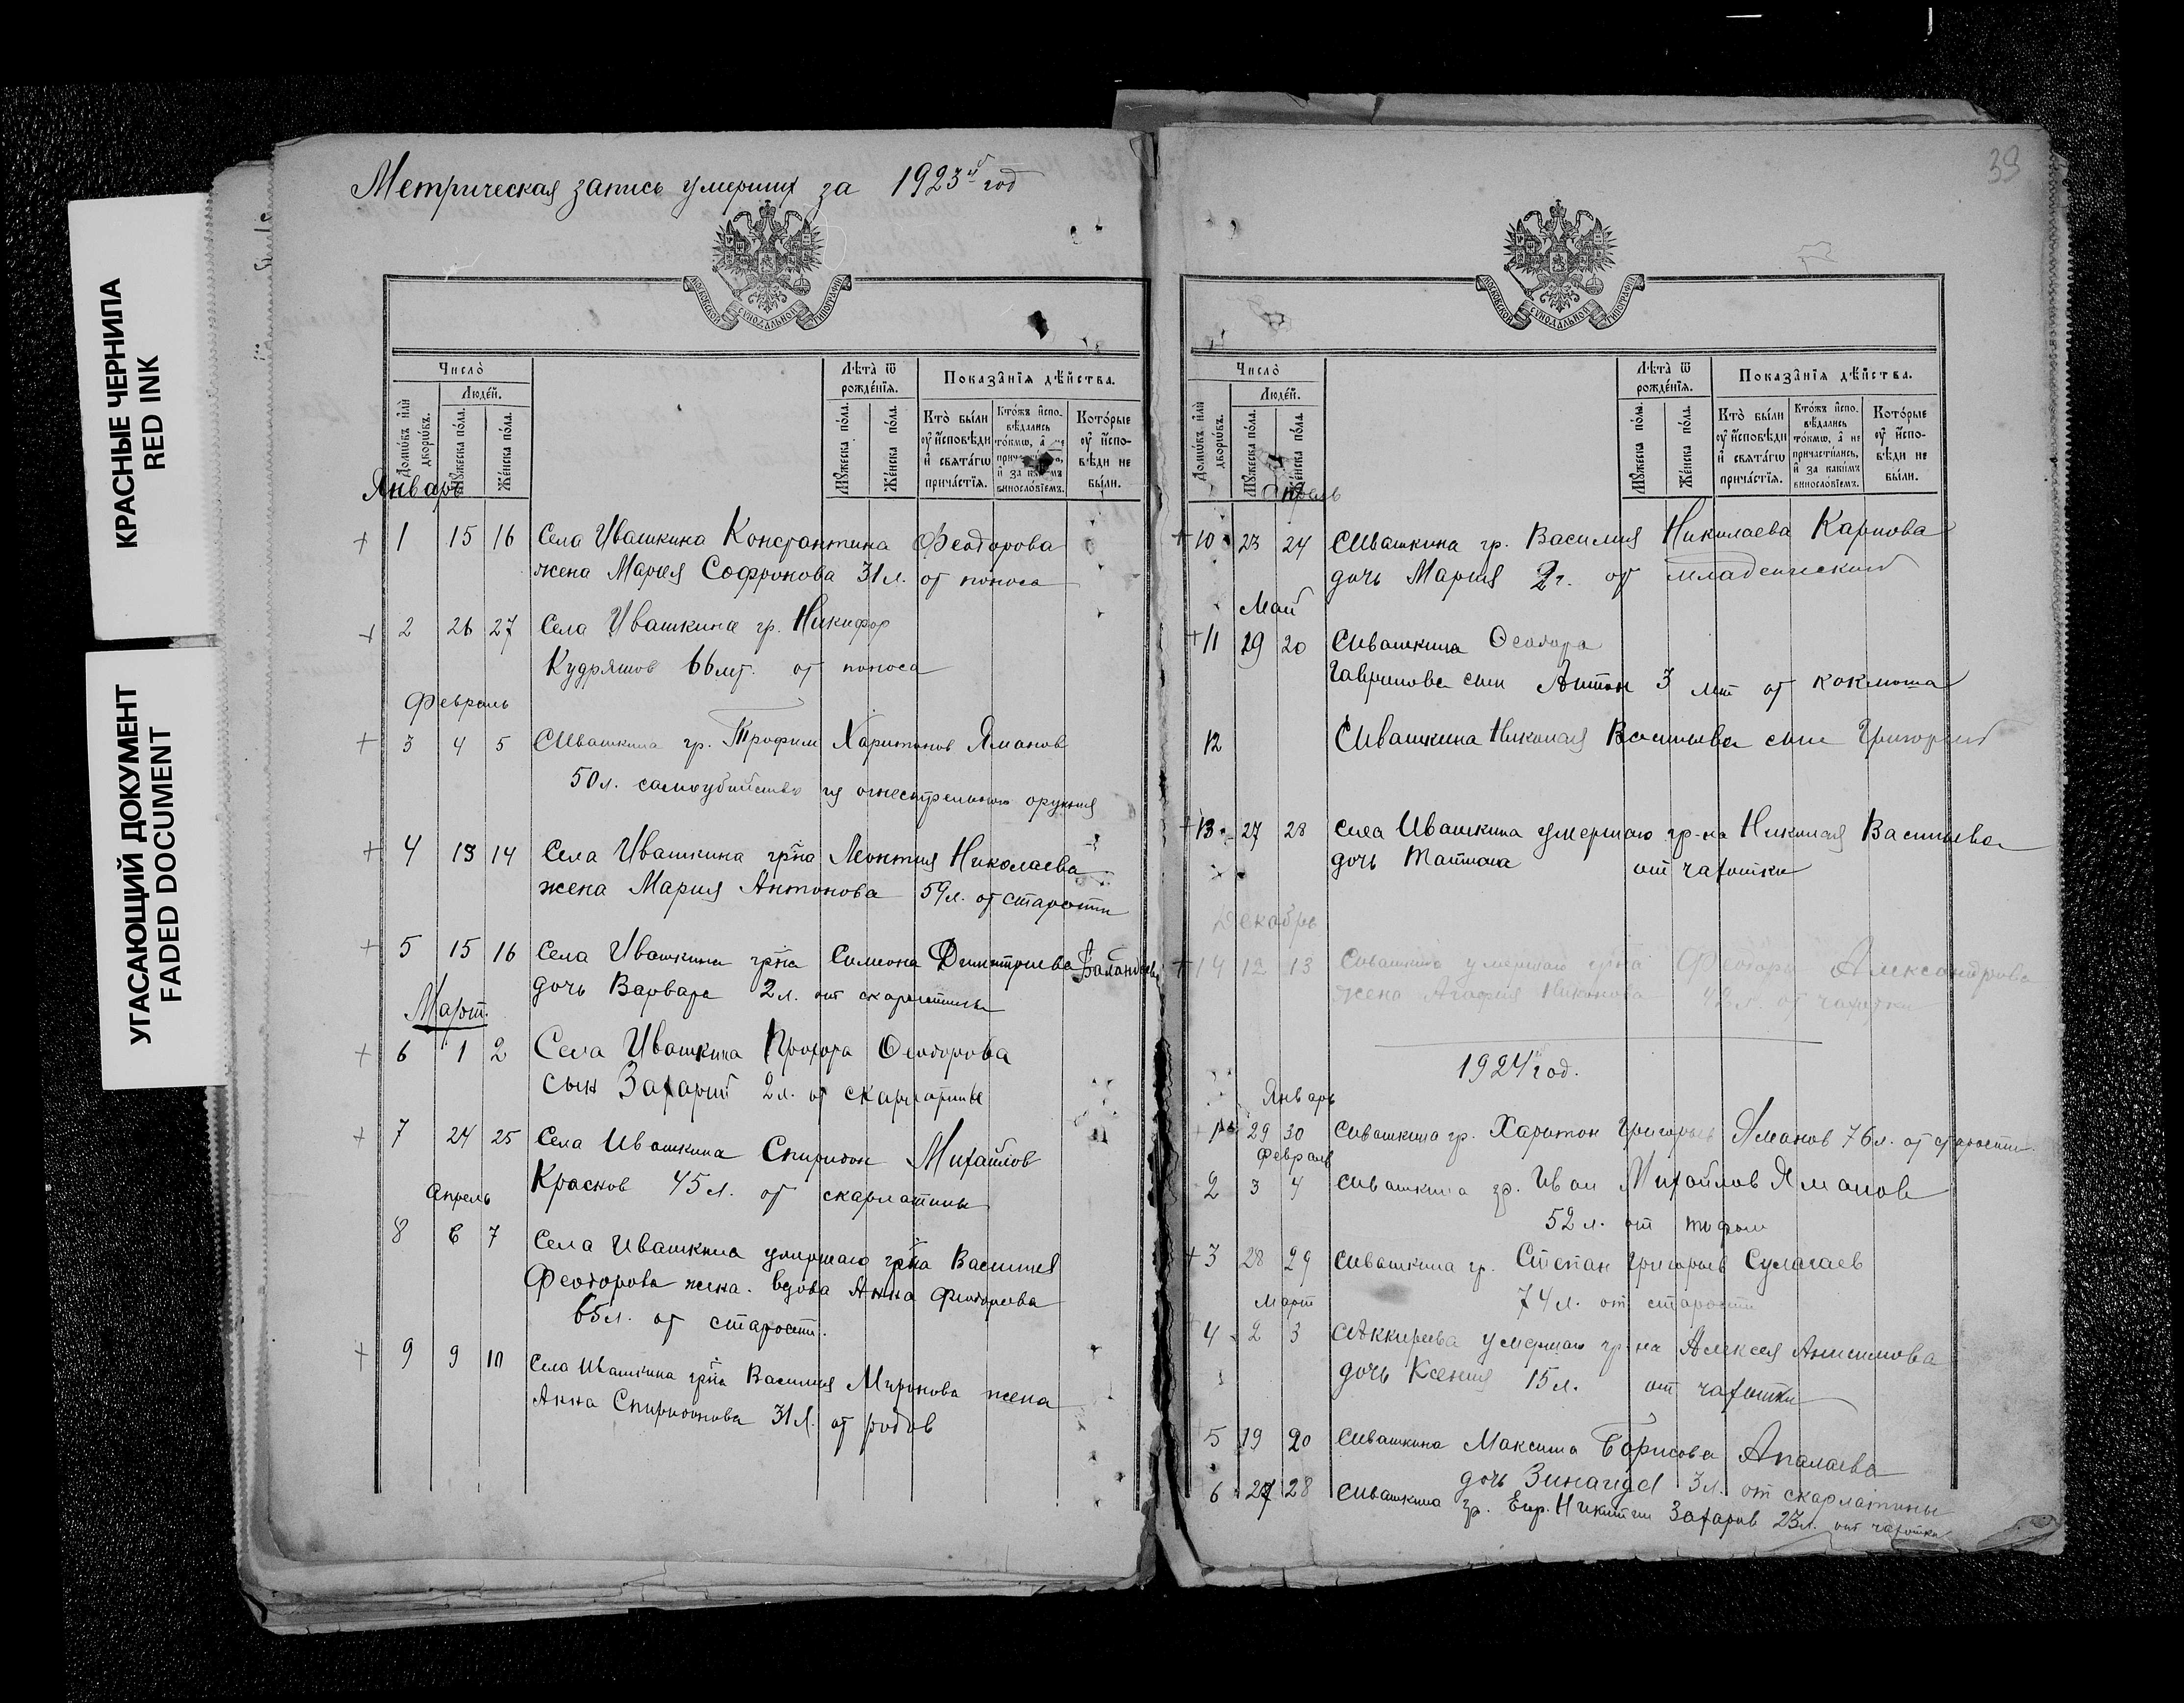 КРАСНЫЕ ЧЕРНИЛА
RED INK
УГАСАЮЩИЙ ДОКУМЕНТ
FADED DOCUMENT
Метрическая запись умерших за 1923й год
МОСКОВСКОЙ СУНОДАЛЬНОЙ ТИПОГРАФІИ
Число̀
Людей.
Домѡвъ или дворѡвъ.
Мꙋжеска пола.
Женска пола.
Лѣта ѿ рожденїѧ.
Мꙋжеска пола.
Женска пола.
Показанїѧ дѣйства.
Кто были ꙋ исповѣди и свѧтагѡ причастїѧ.
Ктожъ исповѣдались токмѡ, а не и за винословїемъ.
Которые ꙋ исповѣди не были.
Январь
+ 1 15 16 Села Ивашкина Константина Феодорова
жена Мария Софронова 31 л. от поноса
+ 2 26 27 Села Ивашкина гр. Никифор
Кудряшов 66 лет. от поноса
Февраль
+ 3 4 5 С Ивашкина гр. Трофим Харитонов Яманов
50 л. самоубийство из огнестрельного оружия
+ 4 13 14 Села Ивашкина гр-на Леонтия Николаева
жена Мария Антонова 59 л. от старости
+ 5 15 16 Села Ивашкина гр-на Симеона Димитриева
дочь Варвара 2 л. от скарлатины
Март.
+ 6 1 2 Села Ивашкина Прохора Феодорова
сын Захарий 2 л. от скарлатины
+ 7 24 25 Села Ивашкина Спиридон Михайлов
Краснов 45 л. от скарлатины
Апрель
8 6 7 Села Ивашкина умершаго гр-на Василия
Феодорова жена. вдова Анна Феодорова
65 л. от старости.
+ 9 9 10 Села Ивашкина гр-на Василия Миронова жена
Анна Спиридонова 31 л. от родов
39
МОСКОВСКОЙ СУНОДАЛЬНОЙ ТИПОГРАФІИ
Число̀
Людей.
Домѡвъ или дворѡвъ.
Мꙋжеска пола.
Женска пола.
Лѣта ѿ рожденїѧ.
Мꙋжеска пола.
Женска пола.
Показанїѧ дѣйства.
Кто были ꙋ исповѣди и свѧтагѡ причастїѧ.
Ктожъ исповѣдались токмѡ, а не причастились, и за какимъ винословїемъ.
Которые ꙋ исповѣди не были.
Апрель
+ 10 23 24 С Ивашкина гр. Василия Николаева Карпова
дочь Мария 2 г. от младенческой
Май
+ 11 19 20 С Ивашкина Феодора
Гаврилова сын Антон 3 лет от коклюша
12 С Ивашкина Николая Васильева сын Григорий
+ 13 27 28 Села Ивашкина умершаго гр-на Николая Васильева
дочь Татиана от чахотки
Декабрь
+ 14 12 13 С Ивашкина умершаго гр-на Феодора Александрова
жена Агафия Никонова 42 л. от чахотки
1924й год.
Январь
+ 1 29 30 С Ивашкина гр. Харитон Григорьев Яманов 76 л. от старости.
Февраль
2 3 4 С Ивашкина гр. Иван Михайлов Яманов
52 л. от тифа
+ 3 28 29 С Ивашкина гр. Степан Григорьев Сулагаев
74 л. от старости
Март
+ 4 2 3 С Аккиреева умершаго гр-на Алексея Анисимова
дочь Ксения 15 л. от чахотки
5 19 20 С Ивашкина Максима Борисова Апалаева
дочь Зинаида 3 л. от скарлатины
6 27 28 С Ивашкина гр. Никитин Захаров 23 л. от чахотки